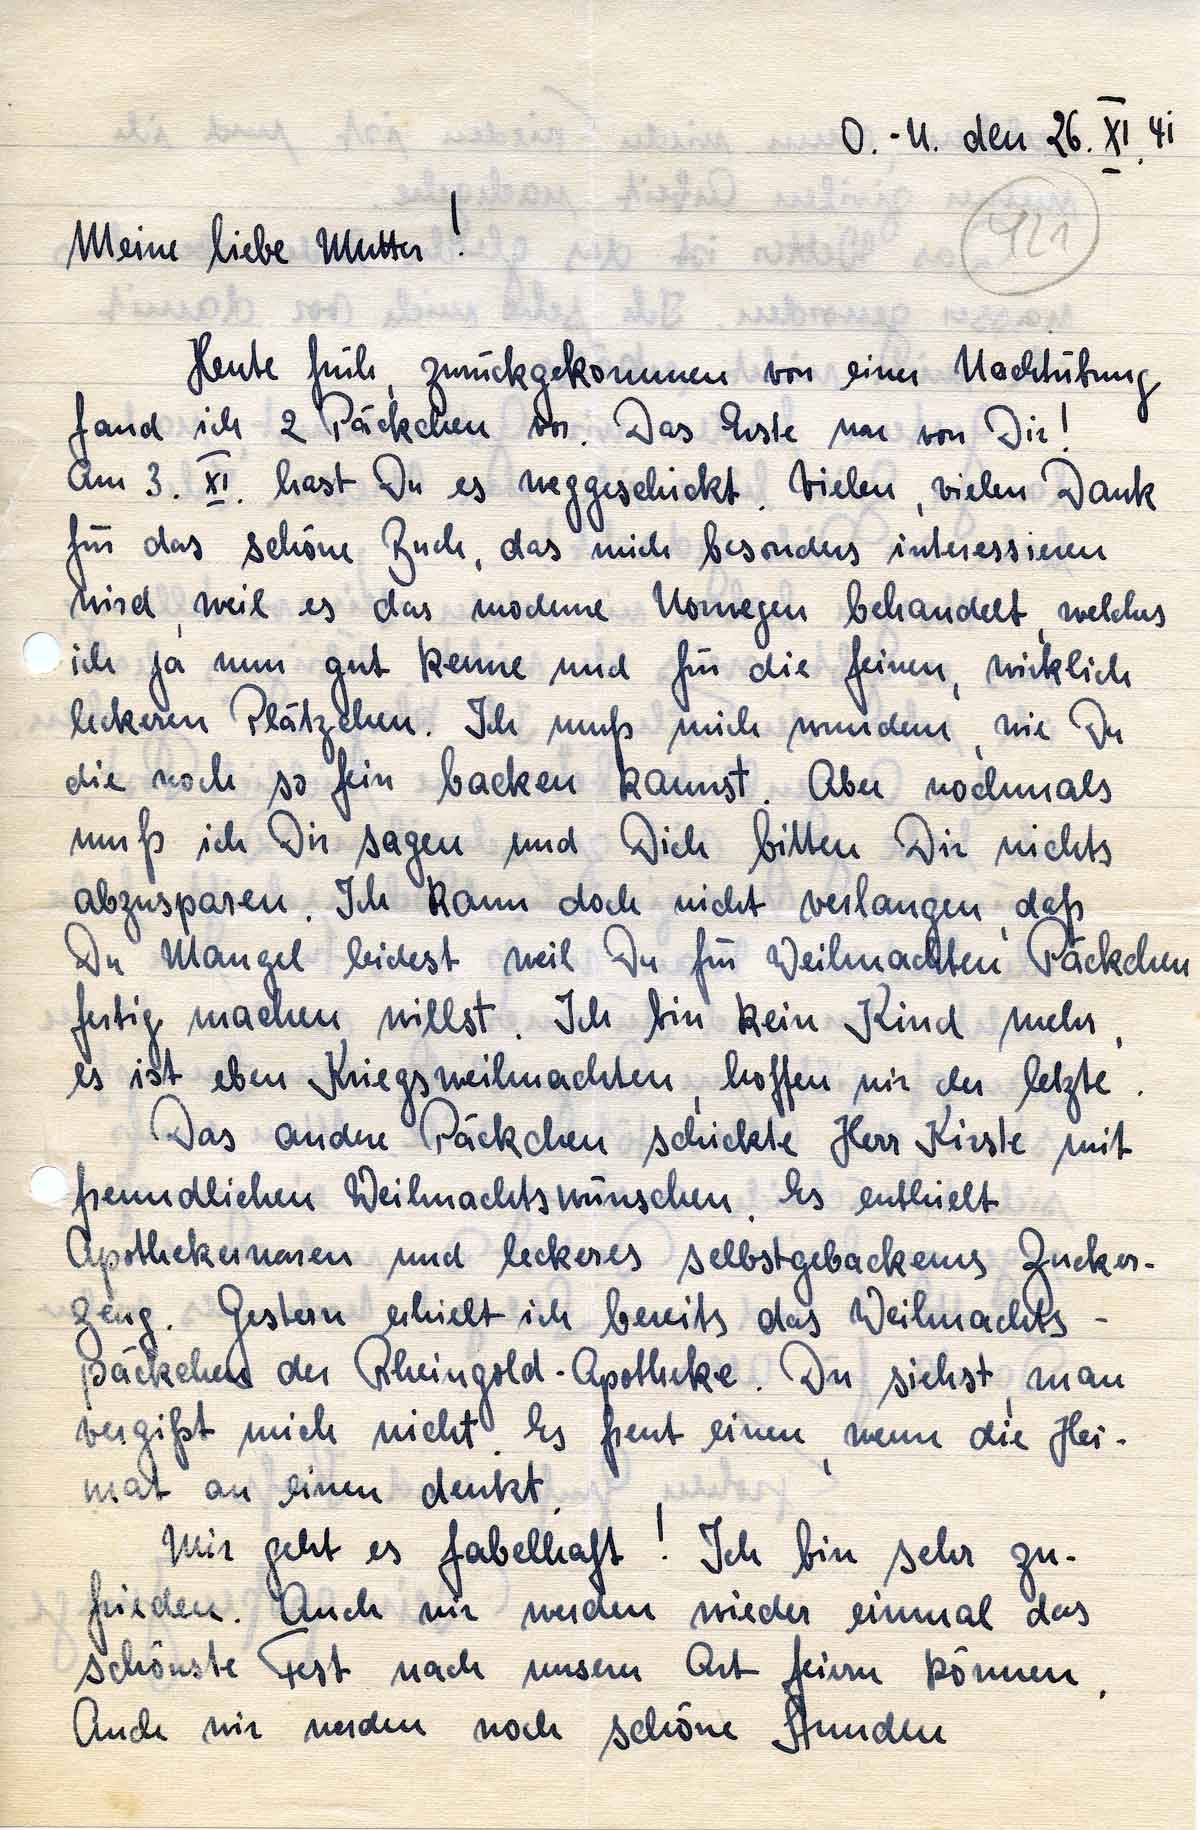 O.-U. den 26. XI. 41
921
Meine liebe Mutter!
Heute früh, zurückgekommen von einer Nachtübung
fand ich 2 Päckchen vor. Das Erste war von Dir!
Am 3. XI. hast Du es weggeschickt. Vielen, vielen Dank
für das schöne Buch, das mich besonders interessieren
wird, weil es das moderne Norwegen behandelt, welches
ich ja nun gut kenne und für die feinen, wirklich
leckeren Plätzchen. Ich muß mich wundern, wie Du
die noch so fein backen kannst. Aber nochmals
muß ich Dir sagen und Dich bitten Dir nichts
abzusparen. Ich kann doch nicht verlangen, daß
Du Mangel leidest weil Du für Weihnachten Päckchen
fertig machen willst. Ich bin kein Kind mehr,
es ist eben Kriegsweihnachten, hoffen wir der letzte.
Das andere Päckchen schickte Herr Kirste mit
freundlichen Weihnachtswünschen. Es enthielt
Apothekerwaren und leckeres selbstgebackenes Zucker-
zeug. Gestern erhielt ich bereits das Weihnachts-
päckchen der Rheingold-Apotheke. Du siehst, man
vergißt mich nicht. Es freut einen, wenn die Hei-
mat an einen denkt.
Mir geht es fabelhaft! Ich bin sehr zu-
frieden. Auch wir werden wieder einmal das
schönste Fest nach unserer Art feiern können.
Auch wir werden noch schöne Stunden